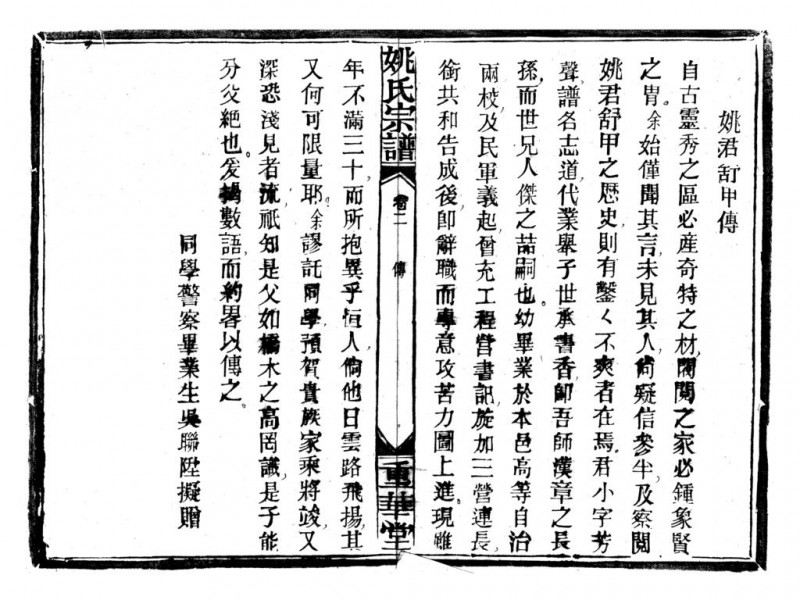 姚君舒甲傳
自古靈秀之區必產奇特之材閥閱之家必鍾象賢
之胄余始僅聞其言未見其人尚疑信參半及察閱
姚君舒甲之歷史則有鑿々不爽者在焉君小字芳
聲譜名志道代業舉子世承書香即吾師漢章之長
孫而世兄人傑之喆嗣也幼畢業於本邑高等自治
兩校及民軍義起曾充工程營書記旋加三營連長
銜共和告成後卽辭職而專意攻苦力圖上進現雖
姚氏宗譜
卷二
傳
重華堂
年不滿三十而所抱異乎恒人倘他日雲路飛揚其
又何可限量耶余謬託同學預賀貴族家乘將竣又
深恐淺見者流祇知是父如橋木之高岡識是子能
芬絕也爰數語而約畧以傳之
同學警察畢業生吳聯陞擬贈